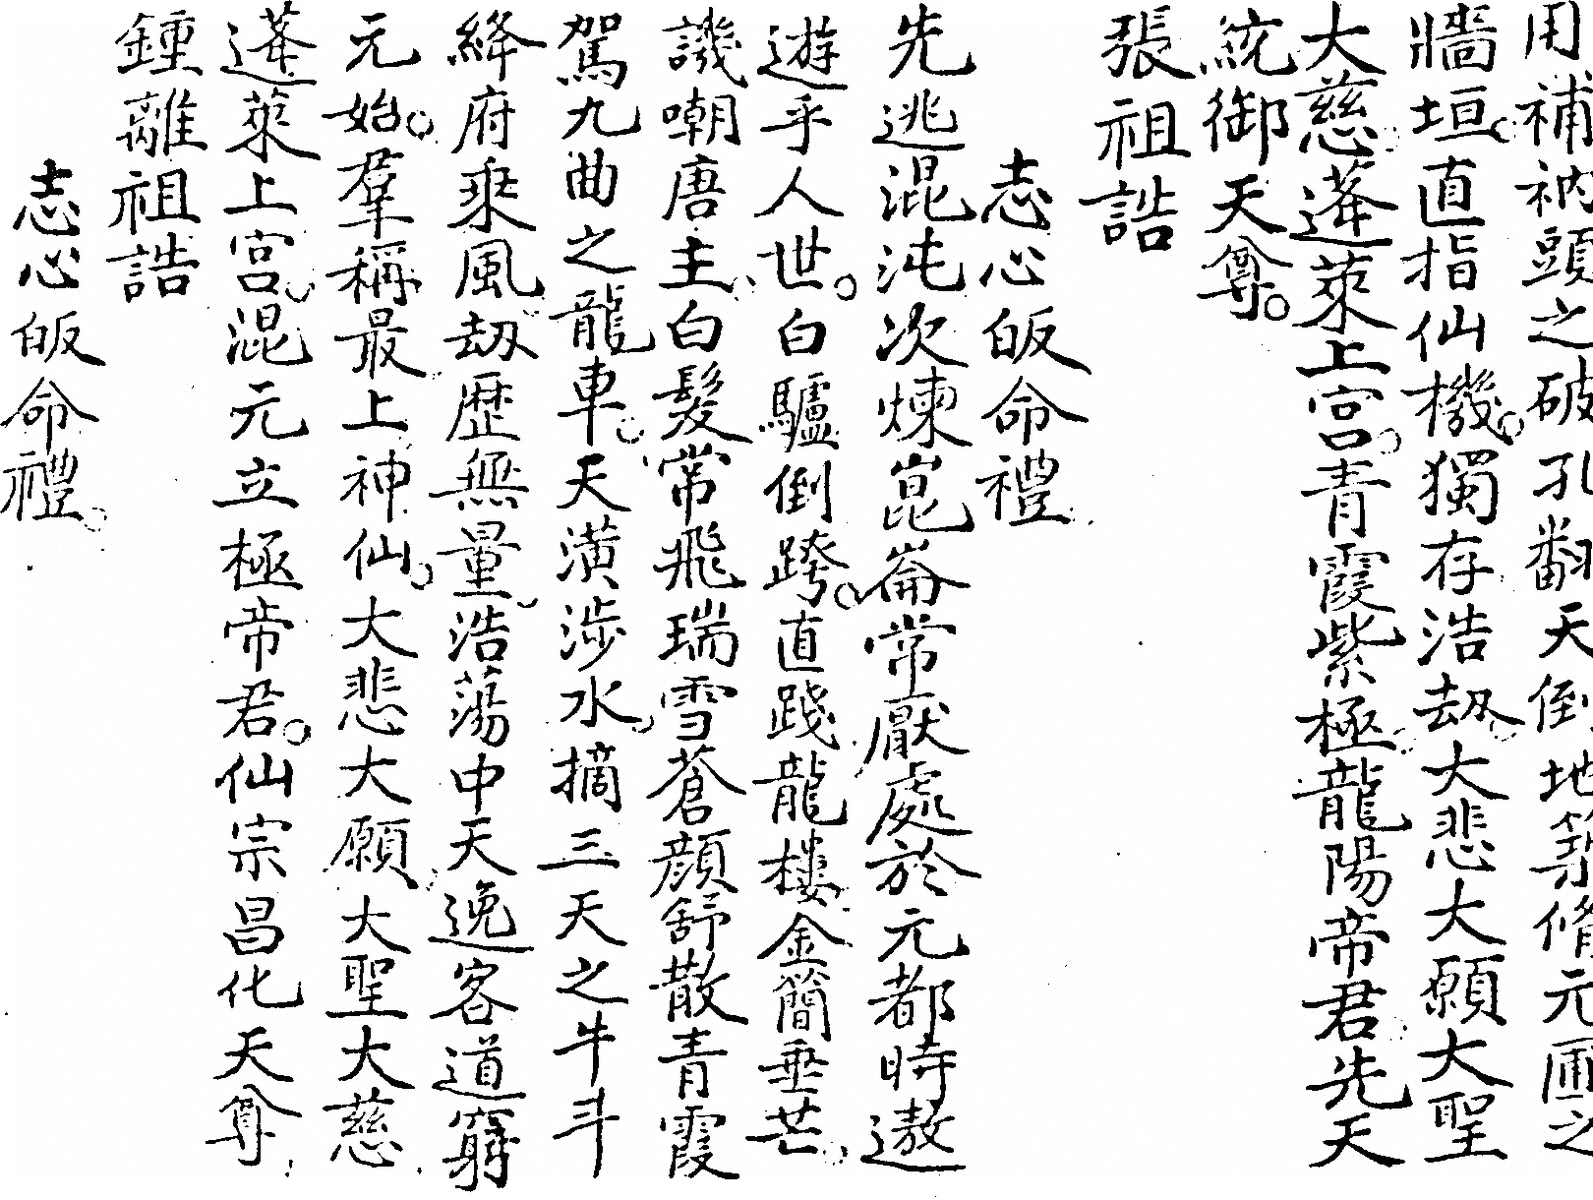 用補衲頭之破孔翻天倒地築脩元圃之
牆垣直指仙機獨存浩刼大悲大願大聖
大慈蓬萊上宮青霞紫極龍陽帝君先天
統御天尊
張祖誥
志心皈命禮
先逃混沌次煉崑崙常厭處於元都時遨
遊乎人世白驢倒跨直踐龍樓金簡垂芒
譏嘲唐主白髮常飛瑞雪蒼顏舒散青霞
駕九曲之龍車天潢涉水摘三天之牛斗
絳府乘風刼歷無量浩蕩中天逸客道窮
元始羣稱最上神仙大悲大願大聖大慈
蓬萊上宮混元立極帝君仙宗昌化天尊
鍾離祖誥
志心皈命禮